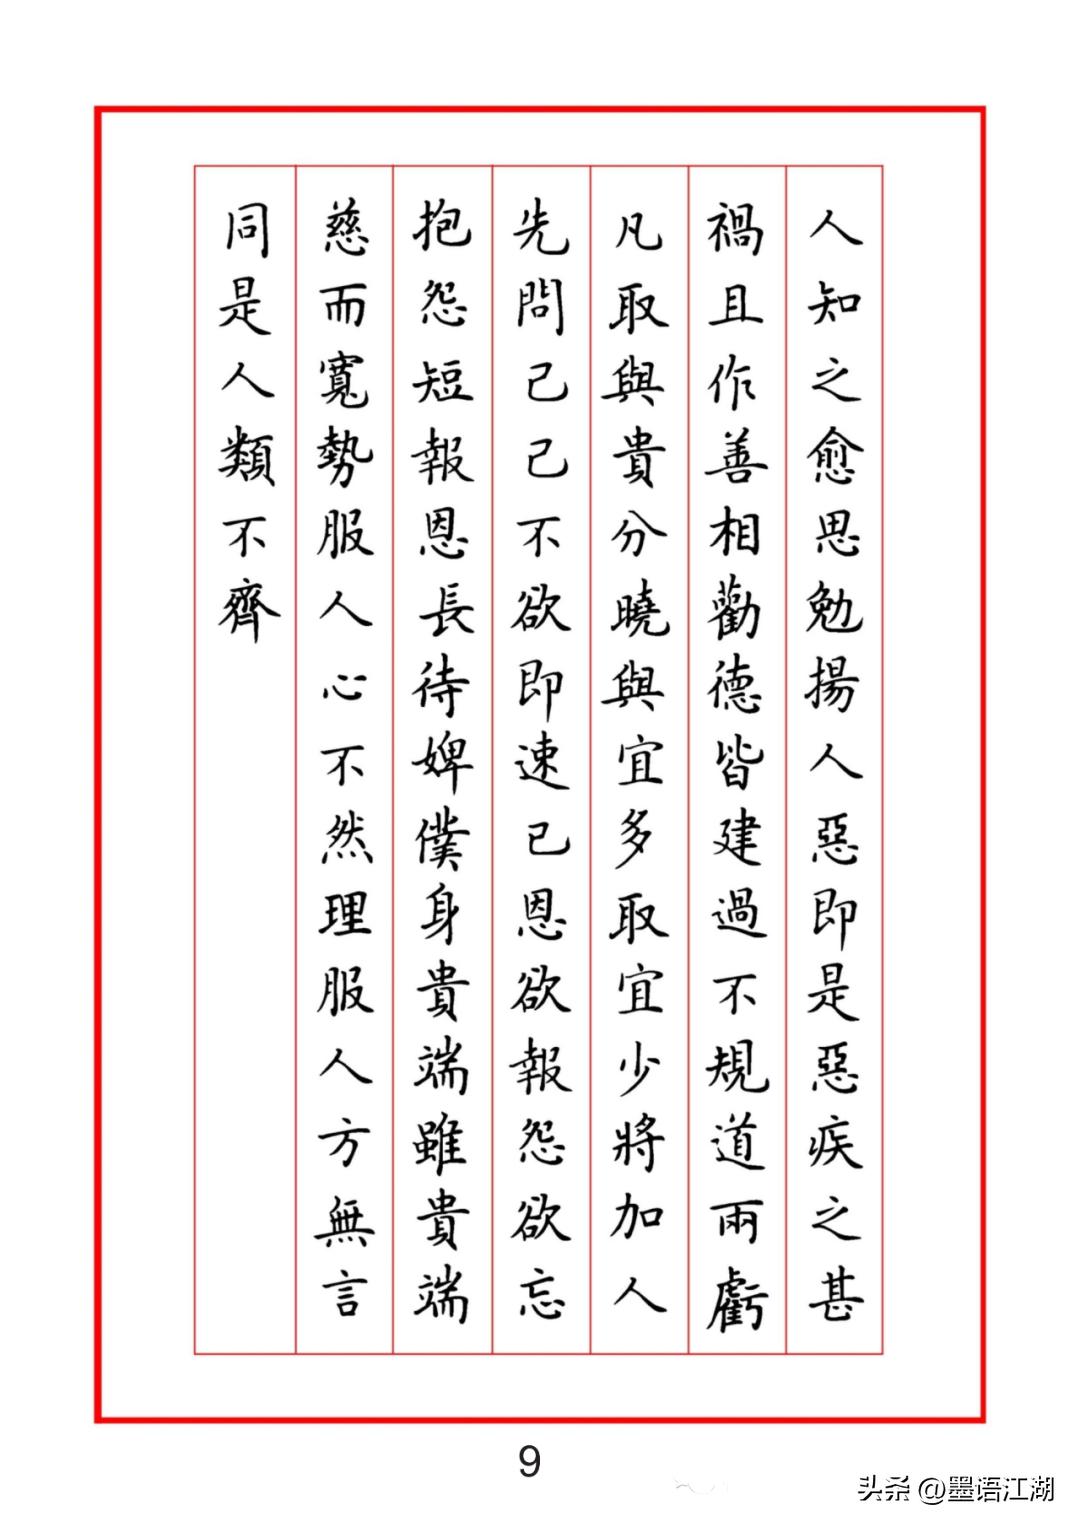 人知之愈思勉揚人惡即是惡疾之甚
禍且作善相勸德皆建過不規道兩虧
凡取與貴分曉與宜多取宜少將加人
先問己己不欲即速已恩欲報怨欲忘
抱怨短報恩長待婢僕身貴端雖貴端
慈而寬勢服人心不然理服人方無言
同是人類不齊
9
头条 @墨语江湖